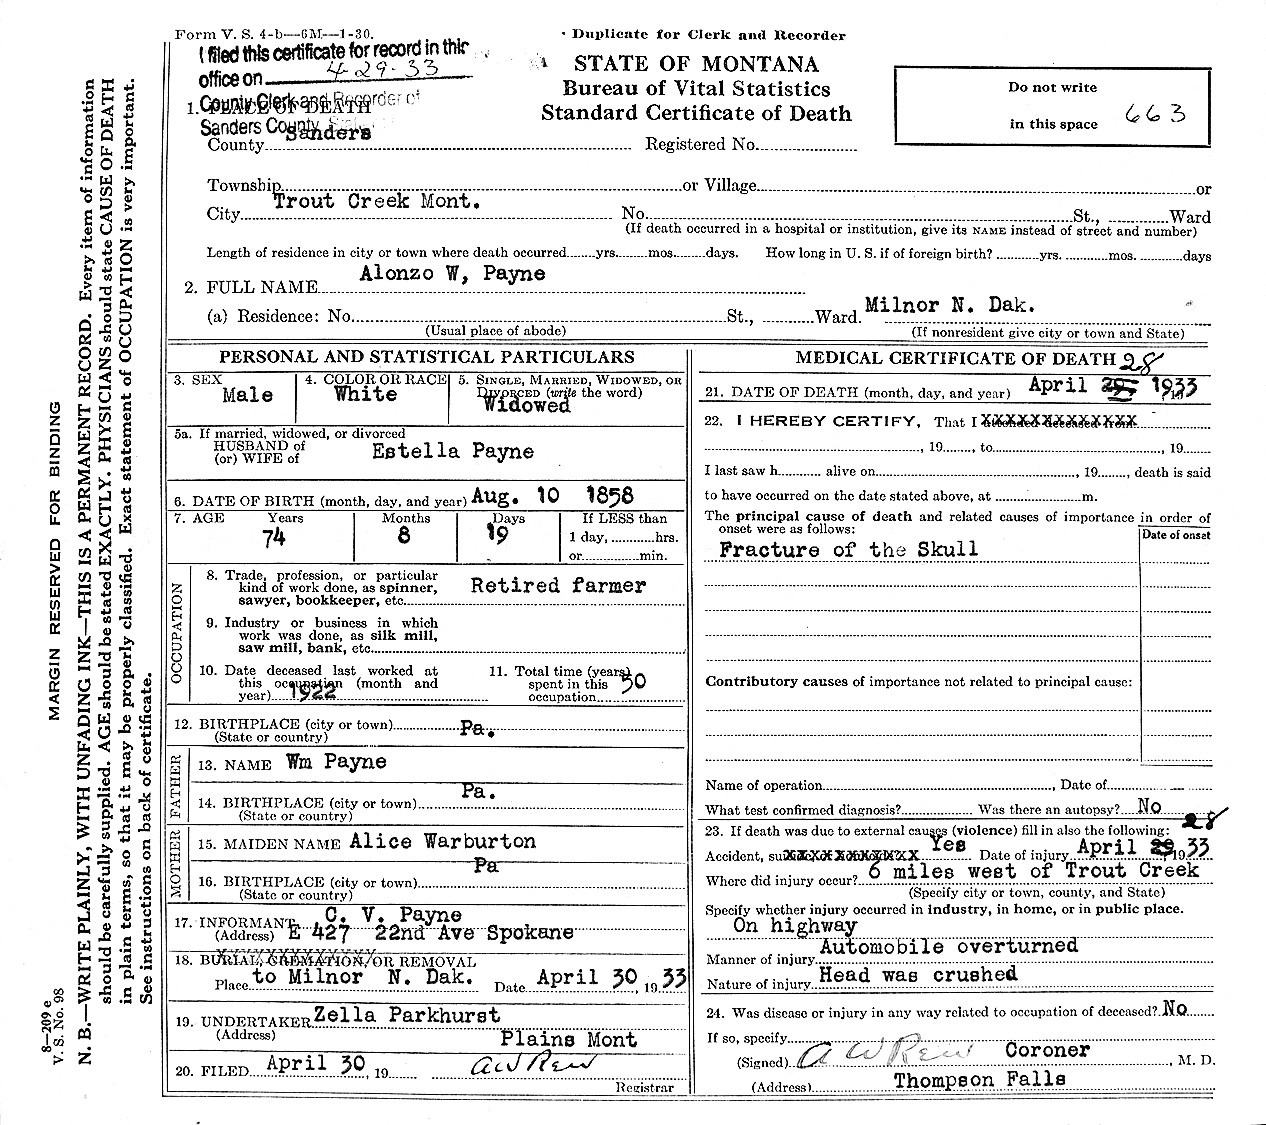 Form V. S. 4-b—6M—1-30.
· Duplicate for Clerk and Recorder
I filed this certificate for record in this
office on 4-29-33
County Clerk and Recorder of
Sanders County
STATE OF MONTANA
Bureau of Vital Statistics
Standard Certificate of Death
Do not write
in this space
663
1. PLACE OF DEATH
County Sanders Registered No.
Township or Village or
City Trout Creek Mont. No. St., Ward
(If death occurred in a hospital or institution, give its NAME instead of street and number)
Length of residence in city or town where death occurred yrs. mos. days. How long in U. S. if of foreign birth? yrs. mos. days
2. FULL NAME Alonzo W, Payne
(a) Residence: No. St., Ward. Milnor N. Dak.
(Usual place of abode) (If nonresident give city or town and State)
PERSONAL AND STATISTICAL PARTICULARS
3. SEX Male
4. COLOR OR RACE White
5. SINGLE, MARRIED, WIDOWED, OR
DIVORCED (write the word)
Widowed
5a. If married, widowed, or divorced
HUSBAND of
(or) WIFE of Estella Payne
6. DATE OF BIRTH (month, day, and year) Aug. 10 1858
7. AGE Years 74 Months 8 Days 19
If LESS than
1 day, hrs.
or min.
OCCUPATION
8. Trade, profession, or particular
kind of work done, as spinner,
sawyer, bookkeeper, etc. Retired farmer
9. Industry or business in which
work was done, as silk mill,
saw mill, bank, etc.
10. Date deceased last worked at
this occupation (month and
year) 1922
11. Total time (years)
spent in this
occupation 50
12. BIRTHPLACE (city or town) Pa.
(State or country)
FATHER
13. NAME Wm Payne
14. BIRTHPLACE (city or town) Pa.
(State or country)
MOTHER
15. MAIDEN NAME Alice Warburton
16. BIRTHPLACE (city or town) Pa
(State or country)
17. INFORMANT C. V. Payne
(Address) E 427 22nd Ave Spokane
18. BURIAL, CREMATION, OR REMOVAL
Place to Milnor N. Dak. Date April 30, 1933
19. UNDERTAKER Zella Parkhurst
(Address) Plains Mont
20. FILED April 30, 19 A W Rew
Registrar
MEDICAL CERTIFICATE OF DEATH
28
21. DATE OF DEATH (month, day, and year) April 29, 1933
22. I HEREBY CERTIFY, That I
, 19 , to , 19
I last saw h alive on , 19 , death is said
to have occurred on the date stated above, at m.
The principal cause of death and related causes of importance in order of
onset were as follows:
Date of onset
Fracture of the Skull
Contributory causes of importance not related to principal cause:
Name of operation , Date of
What test confirmed diagnosis? Was there an autopsy? No
23. If death was due to external causes (violence) fill in also the following:
28
Accident, Yes Date of injury April 29, 1933
Where did injury occur? 6 miles west of Trout Creek
(Specify city or town, county, and State)
Specify whether injury occurred in industry, in home, or in public place.
On highway
Manner of injury Automobile overturned
Nature of injury Head was crushed
24. Was disease or injury in any way related to occupation of deceased? No
If so, specify
(Signed) A W Rew Coroner , M. D.
(Address) Thompson Falls
MARGIN RESERVED FOR BINDING
N. B.—WRITE PLAINLY, WITH UNFADING INK—THIS IS A PERMANENT RECORD. Every item of information
should be carefully supplied. AGE should be stated EXACTLY. PHYSICIANS should state CAUSE OF DEATH
in plain terms, so that it may be properly classified. Exact statement of OCCUPATION is very important.
See instructions on back of certificate.
8—209 e
V. S. No. 98